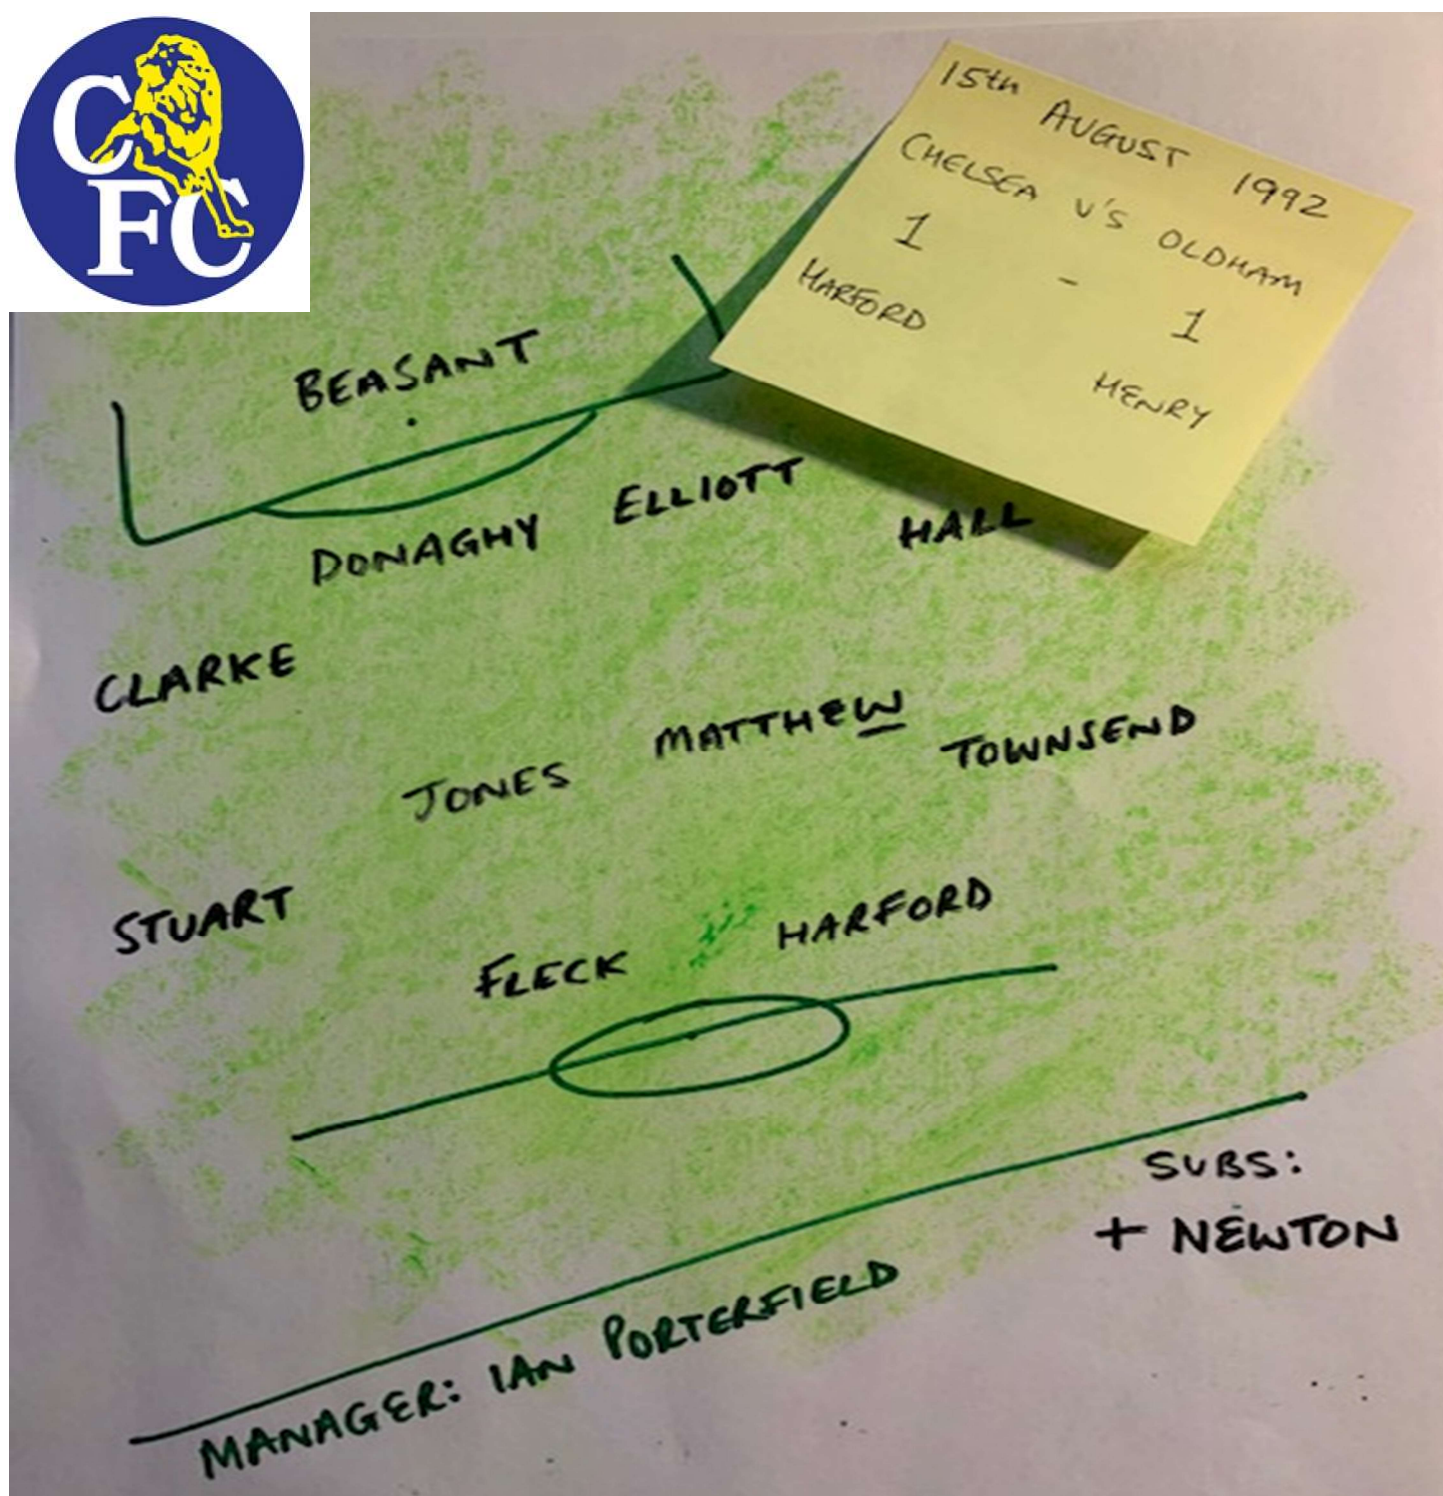 CFC
15th AUGUST 1992
CHELSEA V'S OLDHAM
1 - 1
HARFORD HENRY
BEASANT
DONAGHY ELLIOTT HALL
CLARKE
JONES MATTHEW TOWNSEND
STUART
FLECK HARFORD
SUBS:
+ NEWTON
MANAGER: IAN PORTERFIELD